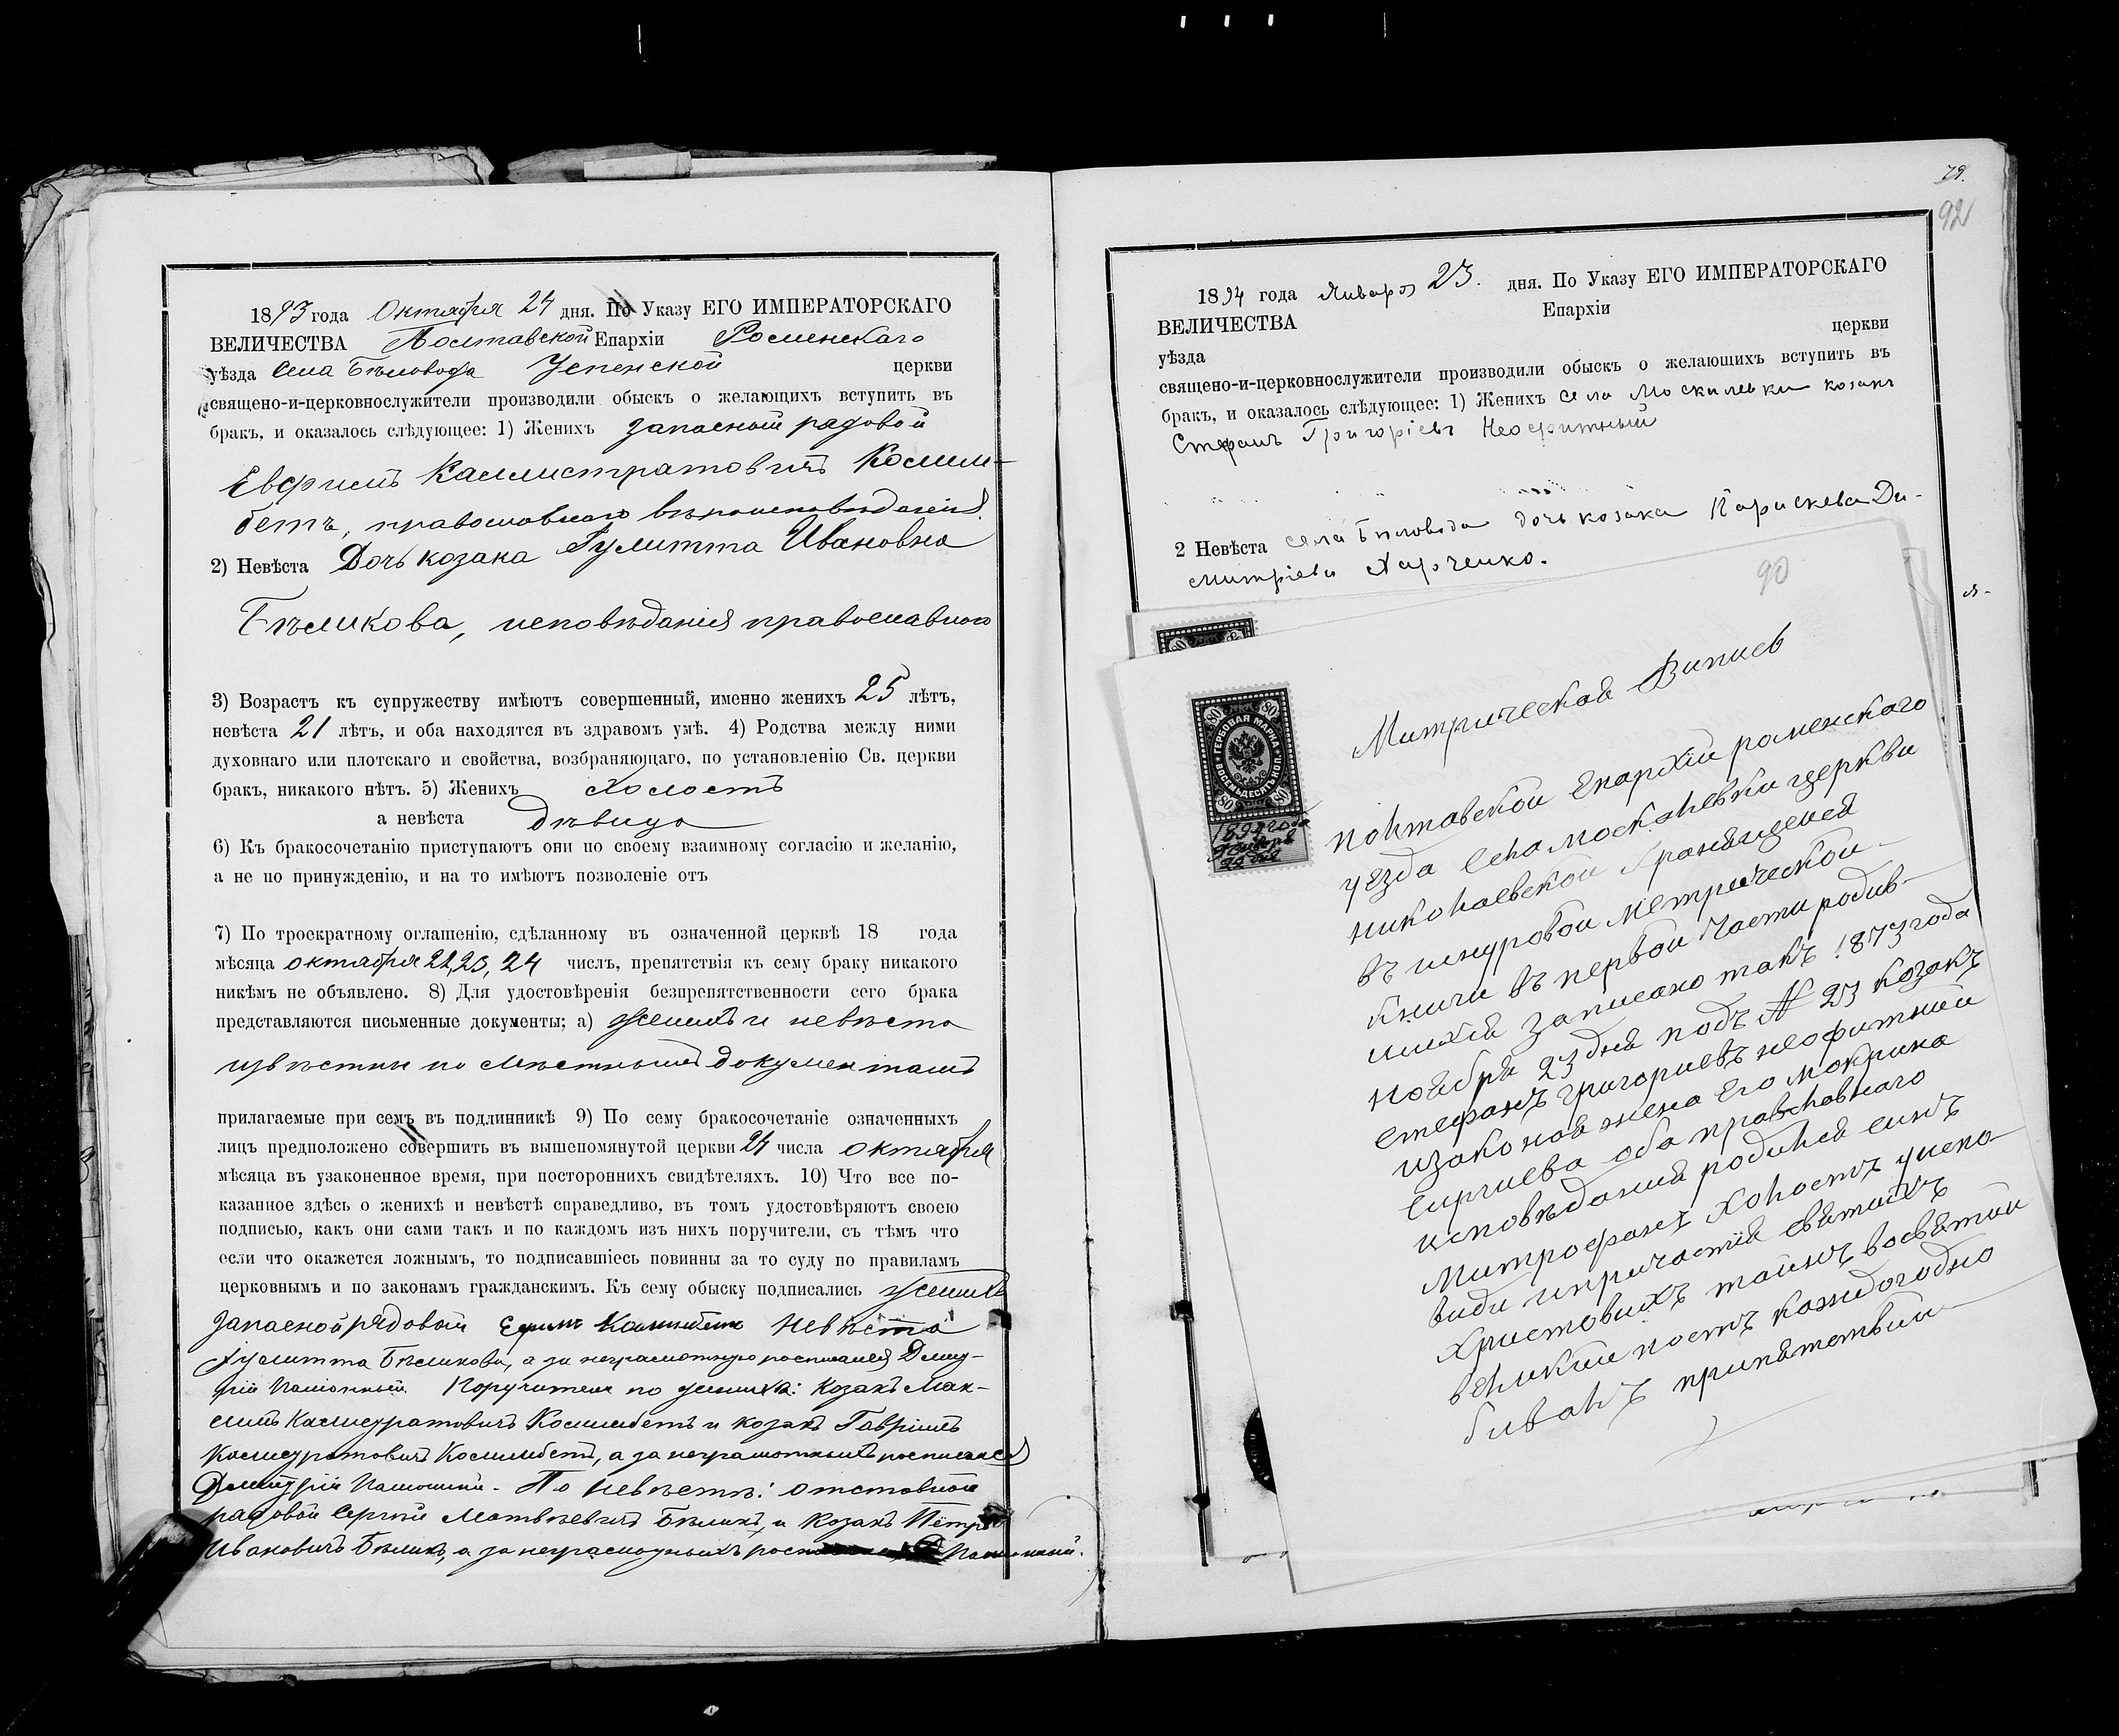 1893 года Октября 24 дня. По Указу ЕГО ИМПЕРАТОРСКАГО
ВЕЛИЧЕСТВА Полтавской Епархіи Роменскаго
уѣзда Села Бѣловода Успенской церкви
священо-и-церковнослужители производили обыскъ о желающихъ вступить въ
бракъ, и оказалось слѣдующее: 1) Женихъ запасной рядовой
Евфимъ Каллистратовичъ Косим-
бетъ, православнаго вѣроисповѣданія.
2) Невѣста Дочь козака Іулитта Ивановна
Бѣликова, исповѣданія православного
3) Возрастъ къ супружеству имѣютъ совершенный, именно женихъ 25 лѣтъ,
невѣста 21 лѣтъ, и оба находятся въ здравомъ умѣ. 4) Родства между ними
духовнаго или плотскаго и свойства, возбраняющаго, по установленію Св. церкви
бракъ, никакого нѣтъ. 5) Женихъ Холостъ
а невѣста Дѣвица
6) Къ бракосочетанію приступаютъ они по своему взаимному согласію и желанію,
а не по принужденію, и на то имѣютъ позволеніе отъ
7) По троекратному оглашенію, сдѣланному въ означенной церквѣ 18 года
мѣсяца октября 22, 23, 24 числъ, препятствія къ сему браку никакого
никѣмъ не объявлено. 8) Для удостовѣренія безпрепятственности сего брака
представляются письменные документы; а) Женихъ и невѣста
извѣстны по мѣстнымъ документамъ
прилагаемые при семъ въ подлинникѣ 9) По сему бракосочетаніе означенныхъ
лицъ предположено совершить въ вышепомянутой церкви 24 числа октября
мѣсяца въ узаконенное время, при постороннихъ свидѣтеляхъ. 10) Что все по-
казанное здѣсь о женихѣ и невѣстѣ справедливо, въ томъ удостовѣряютъ своею
подписью, какъ они сами такъ и по каждомъ изъ нихъ поручители, съ тѣмъ что
если что окажется ложнымъ, то подписавшіесь повинны за то суду по правиламъ
церковнымъ и по законамъ гражданскимъ. Къ сему обыску подписались Женихъ
запасной рядовой Ефимъ невѣста
Іулитта Бѣликова, а за неграмотную росписался Дмит-
рій Поручители по женихѣ: Козакъ Мак-
симъ Косимбетъ и козакъ Гавріилъ
Косимбетъ, а за неграмотныхъ росписался
Дмитрій По невѣстѣ: отставной
рядовой Сергій Матвѣевичъ Бѣликъ, и Козакъ Петръ
Ивановичъ Бѣликъ, а за неграмотныхъ
79.
92
1894 года Января 23. дня. По Указу ЕГО ИМПЕРАТОРСКАГО
ВЕЛИЧЕСТВА Епархіи
уѣзда церкви
священо-и-церковнослужители производили обыскъ о желающихъ вступить въ
бракъ, и оказалось слѣдующее: 1) Женихъ села Москалевки козакъ
Стефанъ Григоріевъ Неофитный
2 Невѣста села Бѣловода дочь козака Параскева Ди-
митріева Харченко.
90
Митрическая Випись
полтавской Епархіи роменского
уезда села москалевки церкви
николаевской хранящейся
въ шнуровой метрической
книги въ первой части родив-
шихся записано такъ 1873 года
ноября 23 дня подъ № 23 козакъ
стефанъ григориевъ неофитний
изаконая жена его мокрина
сиргиева оба православнаго
исповѣдания родился синъ
Митрофанъ Холостъ уиспо-
види ипричастія святихъ
Христовихъ таинъ восвятий
великий постъ каждогодно
бивалъ припятствий
ГЕРБОВАЯ МАРКА
ВОСЕМЬДЕСЯТЪ КОП.
80 80
80 80
1894 года
Января
23 дня